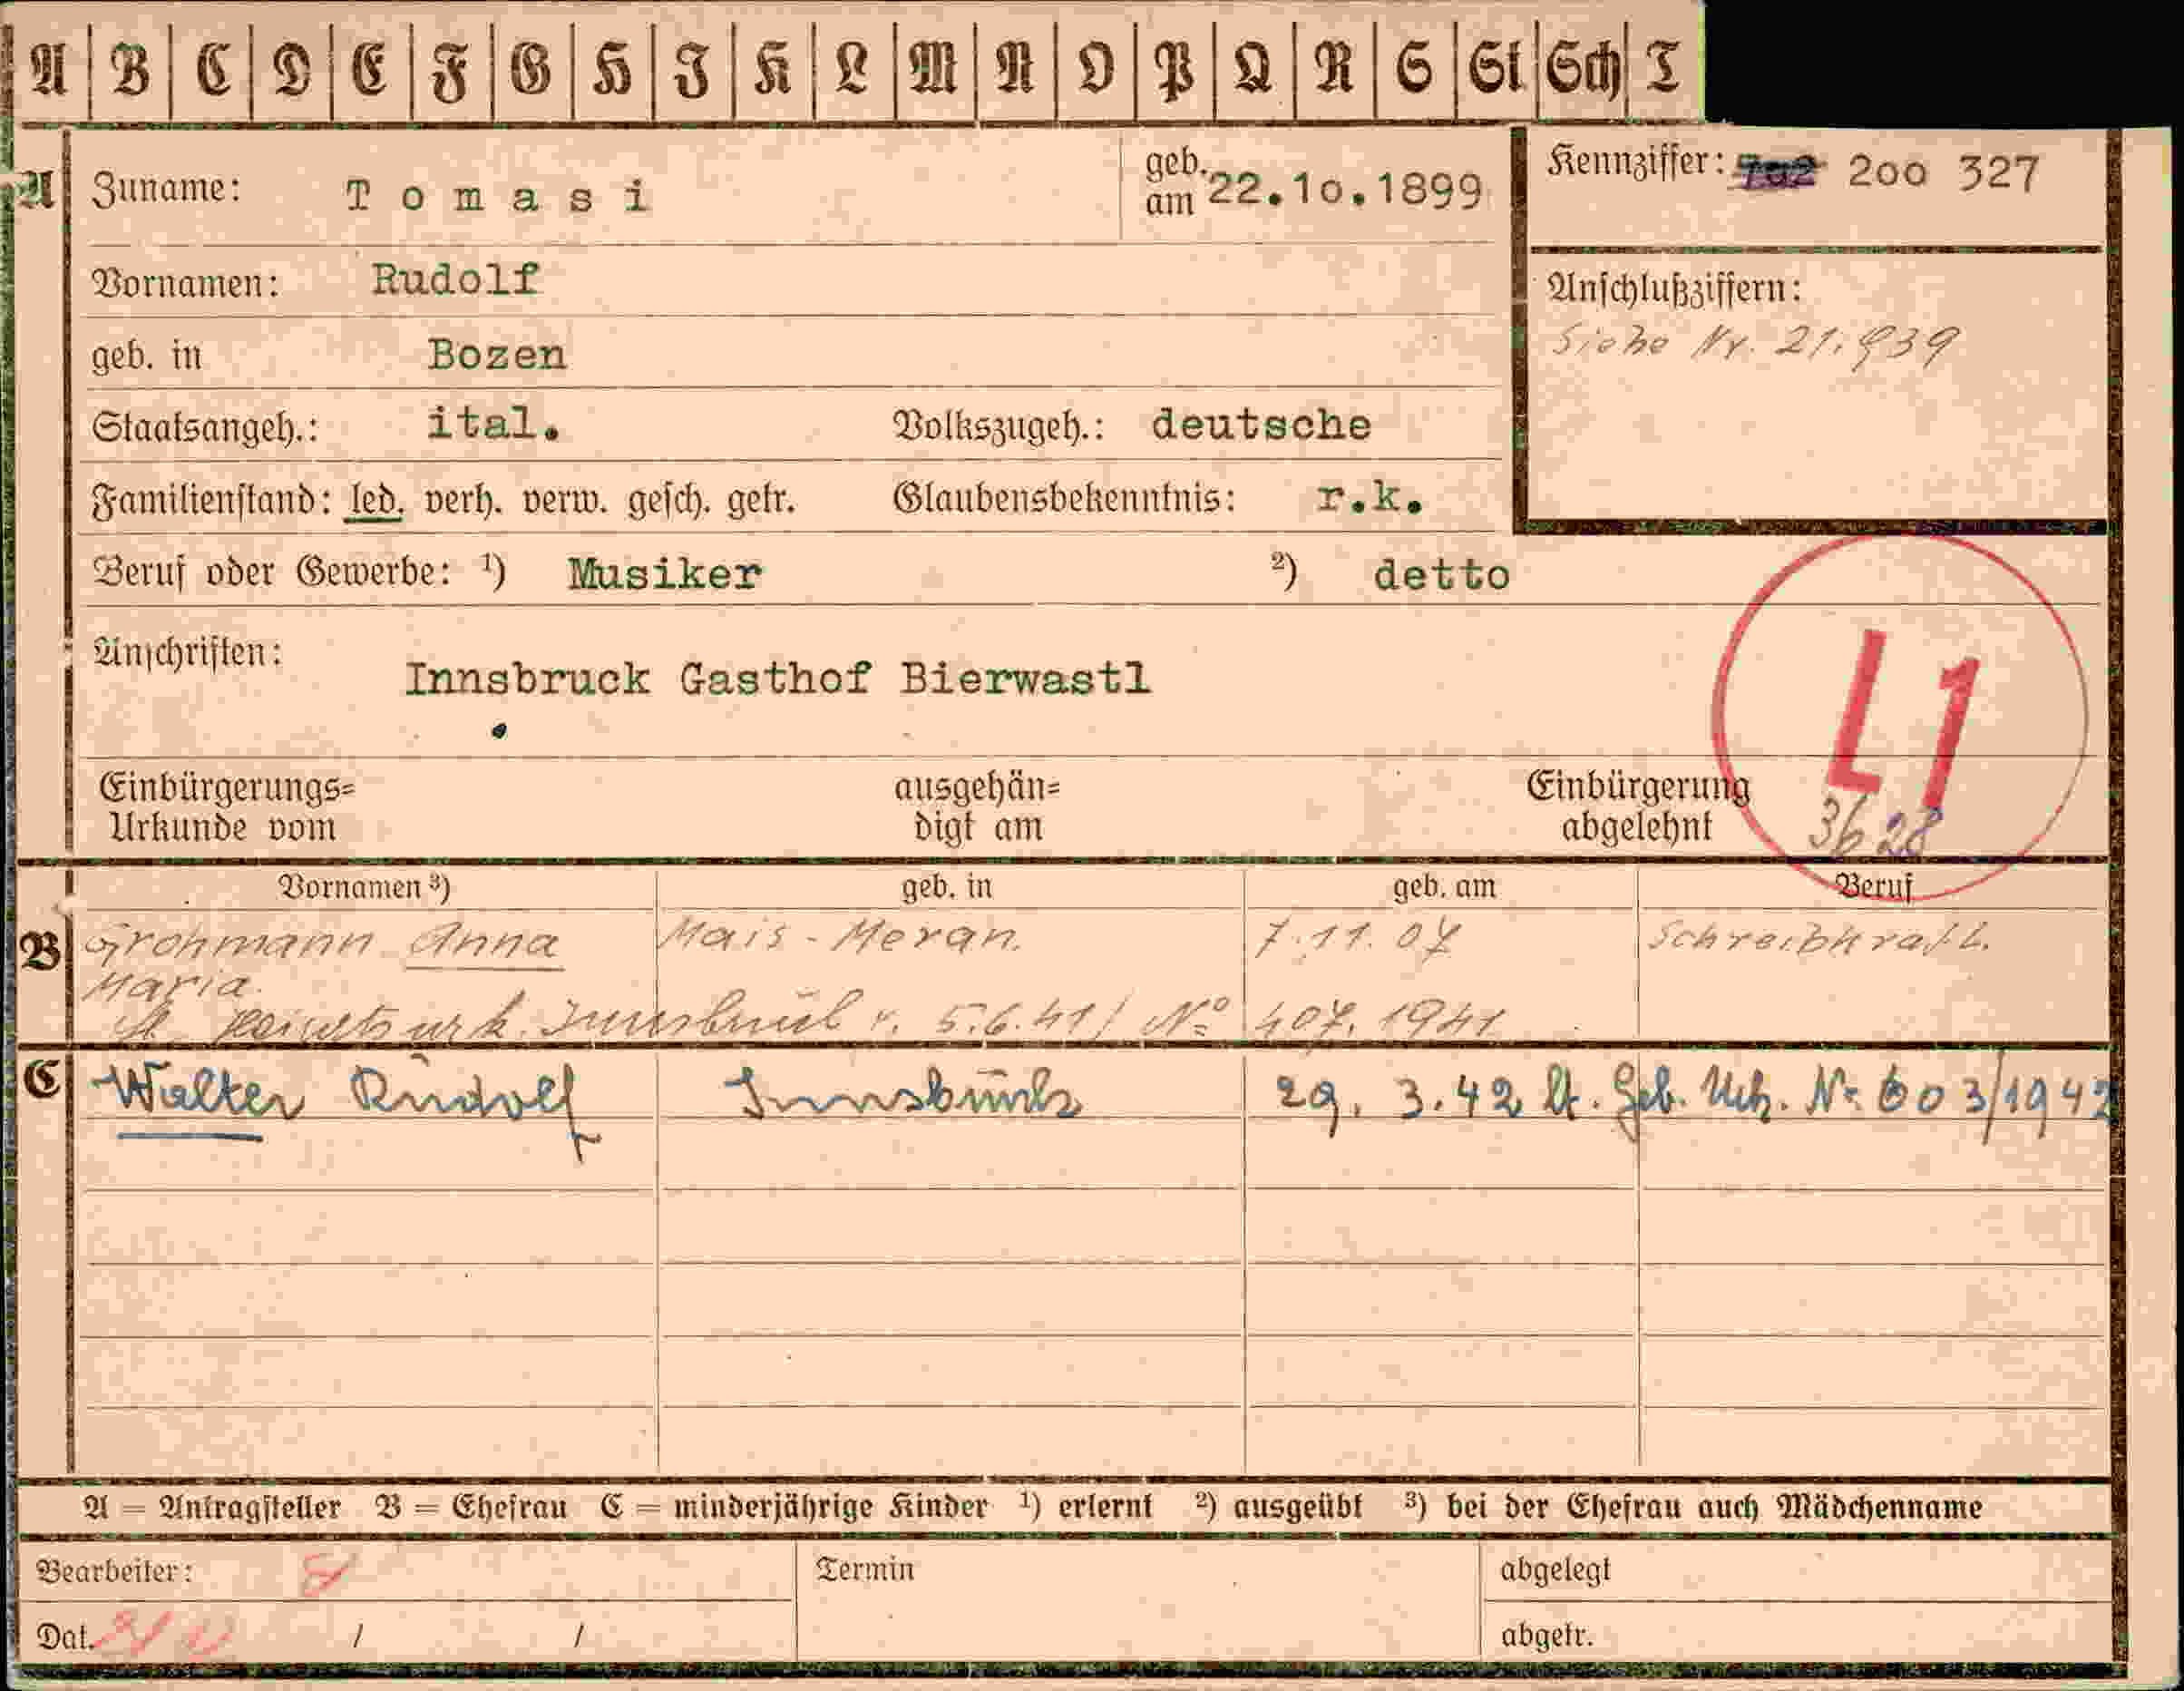 A B C D E F G H I K L M N O P Q R S St Sch T
A Zuname: Tomasi geb. am 22.10.1899 Kennziffer: 200 327
Vornamen: Rudolf Anschlußziffern:
Siehe Nr. 21.939
geb. in Bozen
Staatsangeh.: ital. Volkszugeh.: deutsche
Familienstand: led. verh. verw. gesch. getr. Glaubensbekenntnis: r.k.
Beruf oder Gewerbe: 1) Musiker 2) detto
Anschriften: Innsbruck Gasthof Bierwastl
L1
Einbürgerungs=
Urkunde vom
ausgehän=
digt am
Einbürgerung
abgelehnt
3628
Vornamen 3) geb. in geb. am Beruf
B Grohmann Anna Mais-Meran. 7.11.07 Schreibkraft.
Maria.
lt. Heiratsurk. Innsbruck v. 5.6.41 / No 407. 1941
C Walter Rudolf Innsbruck 29. 3.42 lt. Geb. Urk. Nr. 603/1942
A = Antragsteller B = Ehefrau C = minderjährige Kinder 1) erlernt 2) ausgeübt 3) bei der Ehefrau auch Mädchenname
Bearbeiter: Termin abgelegt
Dat. / / abgetr.